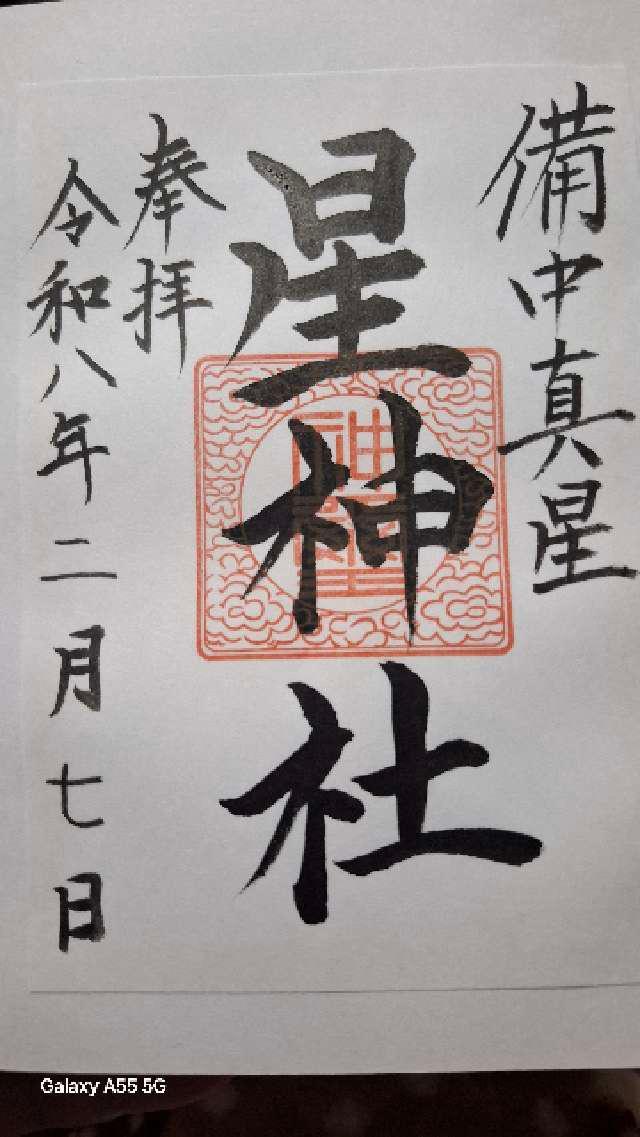 備中真星
星神社
奉拝
令和八年二月七日
Galaxy A55 5G